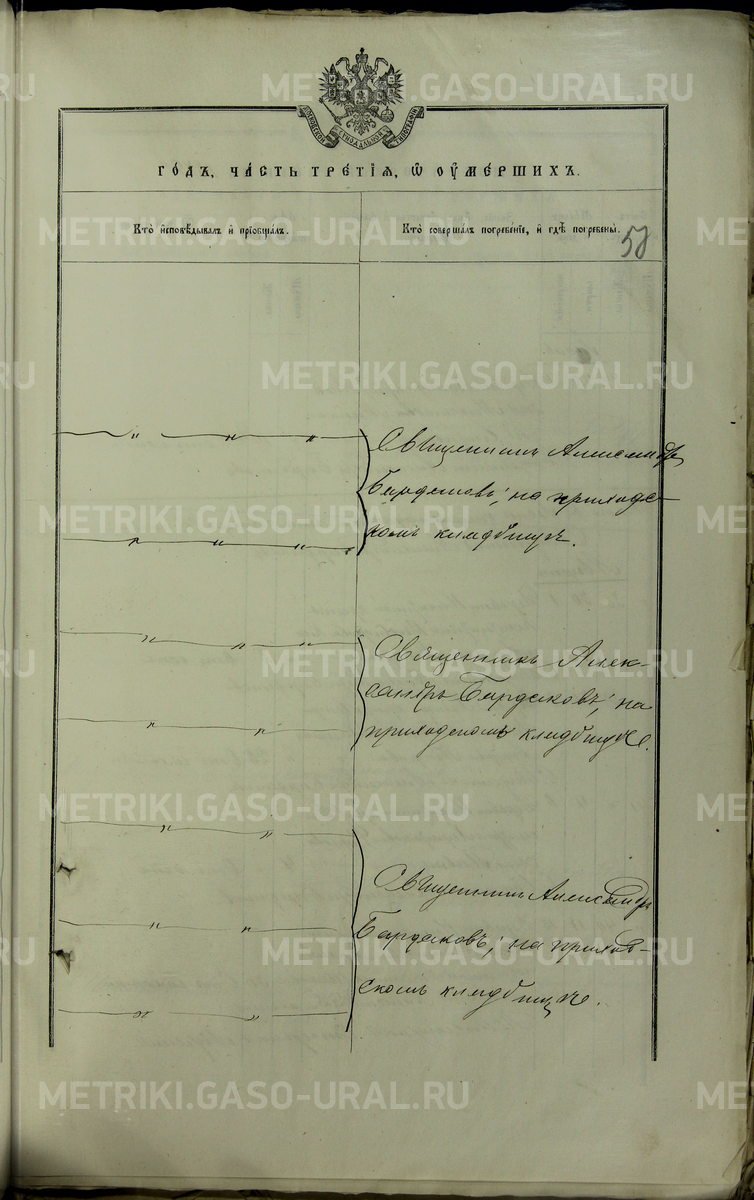 МОСКОВСКОЙ СѴНОДАЛЬНОЙ ТИПОГРАФІИ
ГО́ДЪ, ЧА́СТЬ ТРЕ́ТІѦ, Ѡ ОУ҆МЕ́РШИХЪ.
Кто̀ и҆сповѣ́дывалъ и҆ прїобща́лъ.
Кто̀ соверша́лъ погребе́нїе, и҆ гдѣ̀ погребены̀.
58
Священникъ Александръ
Бардаковъ, на приходс-
комъ кладбищѣ.
Священникъ Алек-
сандръ Бардаковъ, на
приходскомъ кладбищѣ.
Священникъ Александръ
Бардаковъ, на приход-
скомъ кладбищѣ.
METRIKI.GASO-URAL.RU